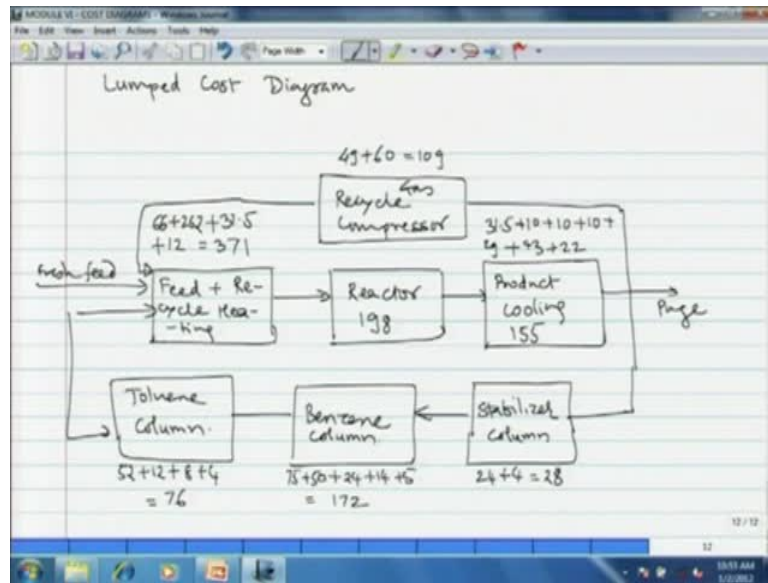 MODULE VI - COST DIAGRAMS - Windows Journal
File Edit View Insert Actions Tools Help
Page Width
Lumped Cost Diagram
49+60 = 109
Recycle Gas
Compressor
66+262+31.5
+12 = 371
31.5+10+10+10+
29+43+22
Fresh feed
Feed + Re-
cycle Hea-
-ting
Reactor
198
Product
Cooling
155
Purge
Toluene
Column.
Benzene
column.
Stabilizer
column
52+12+8+4
= 76
75+50+24+14+5
= 172
24+4 = 28
12 / 12
12
10:55 AM
1/2/2012